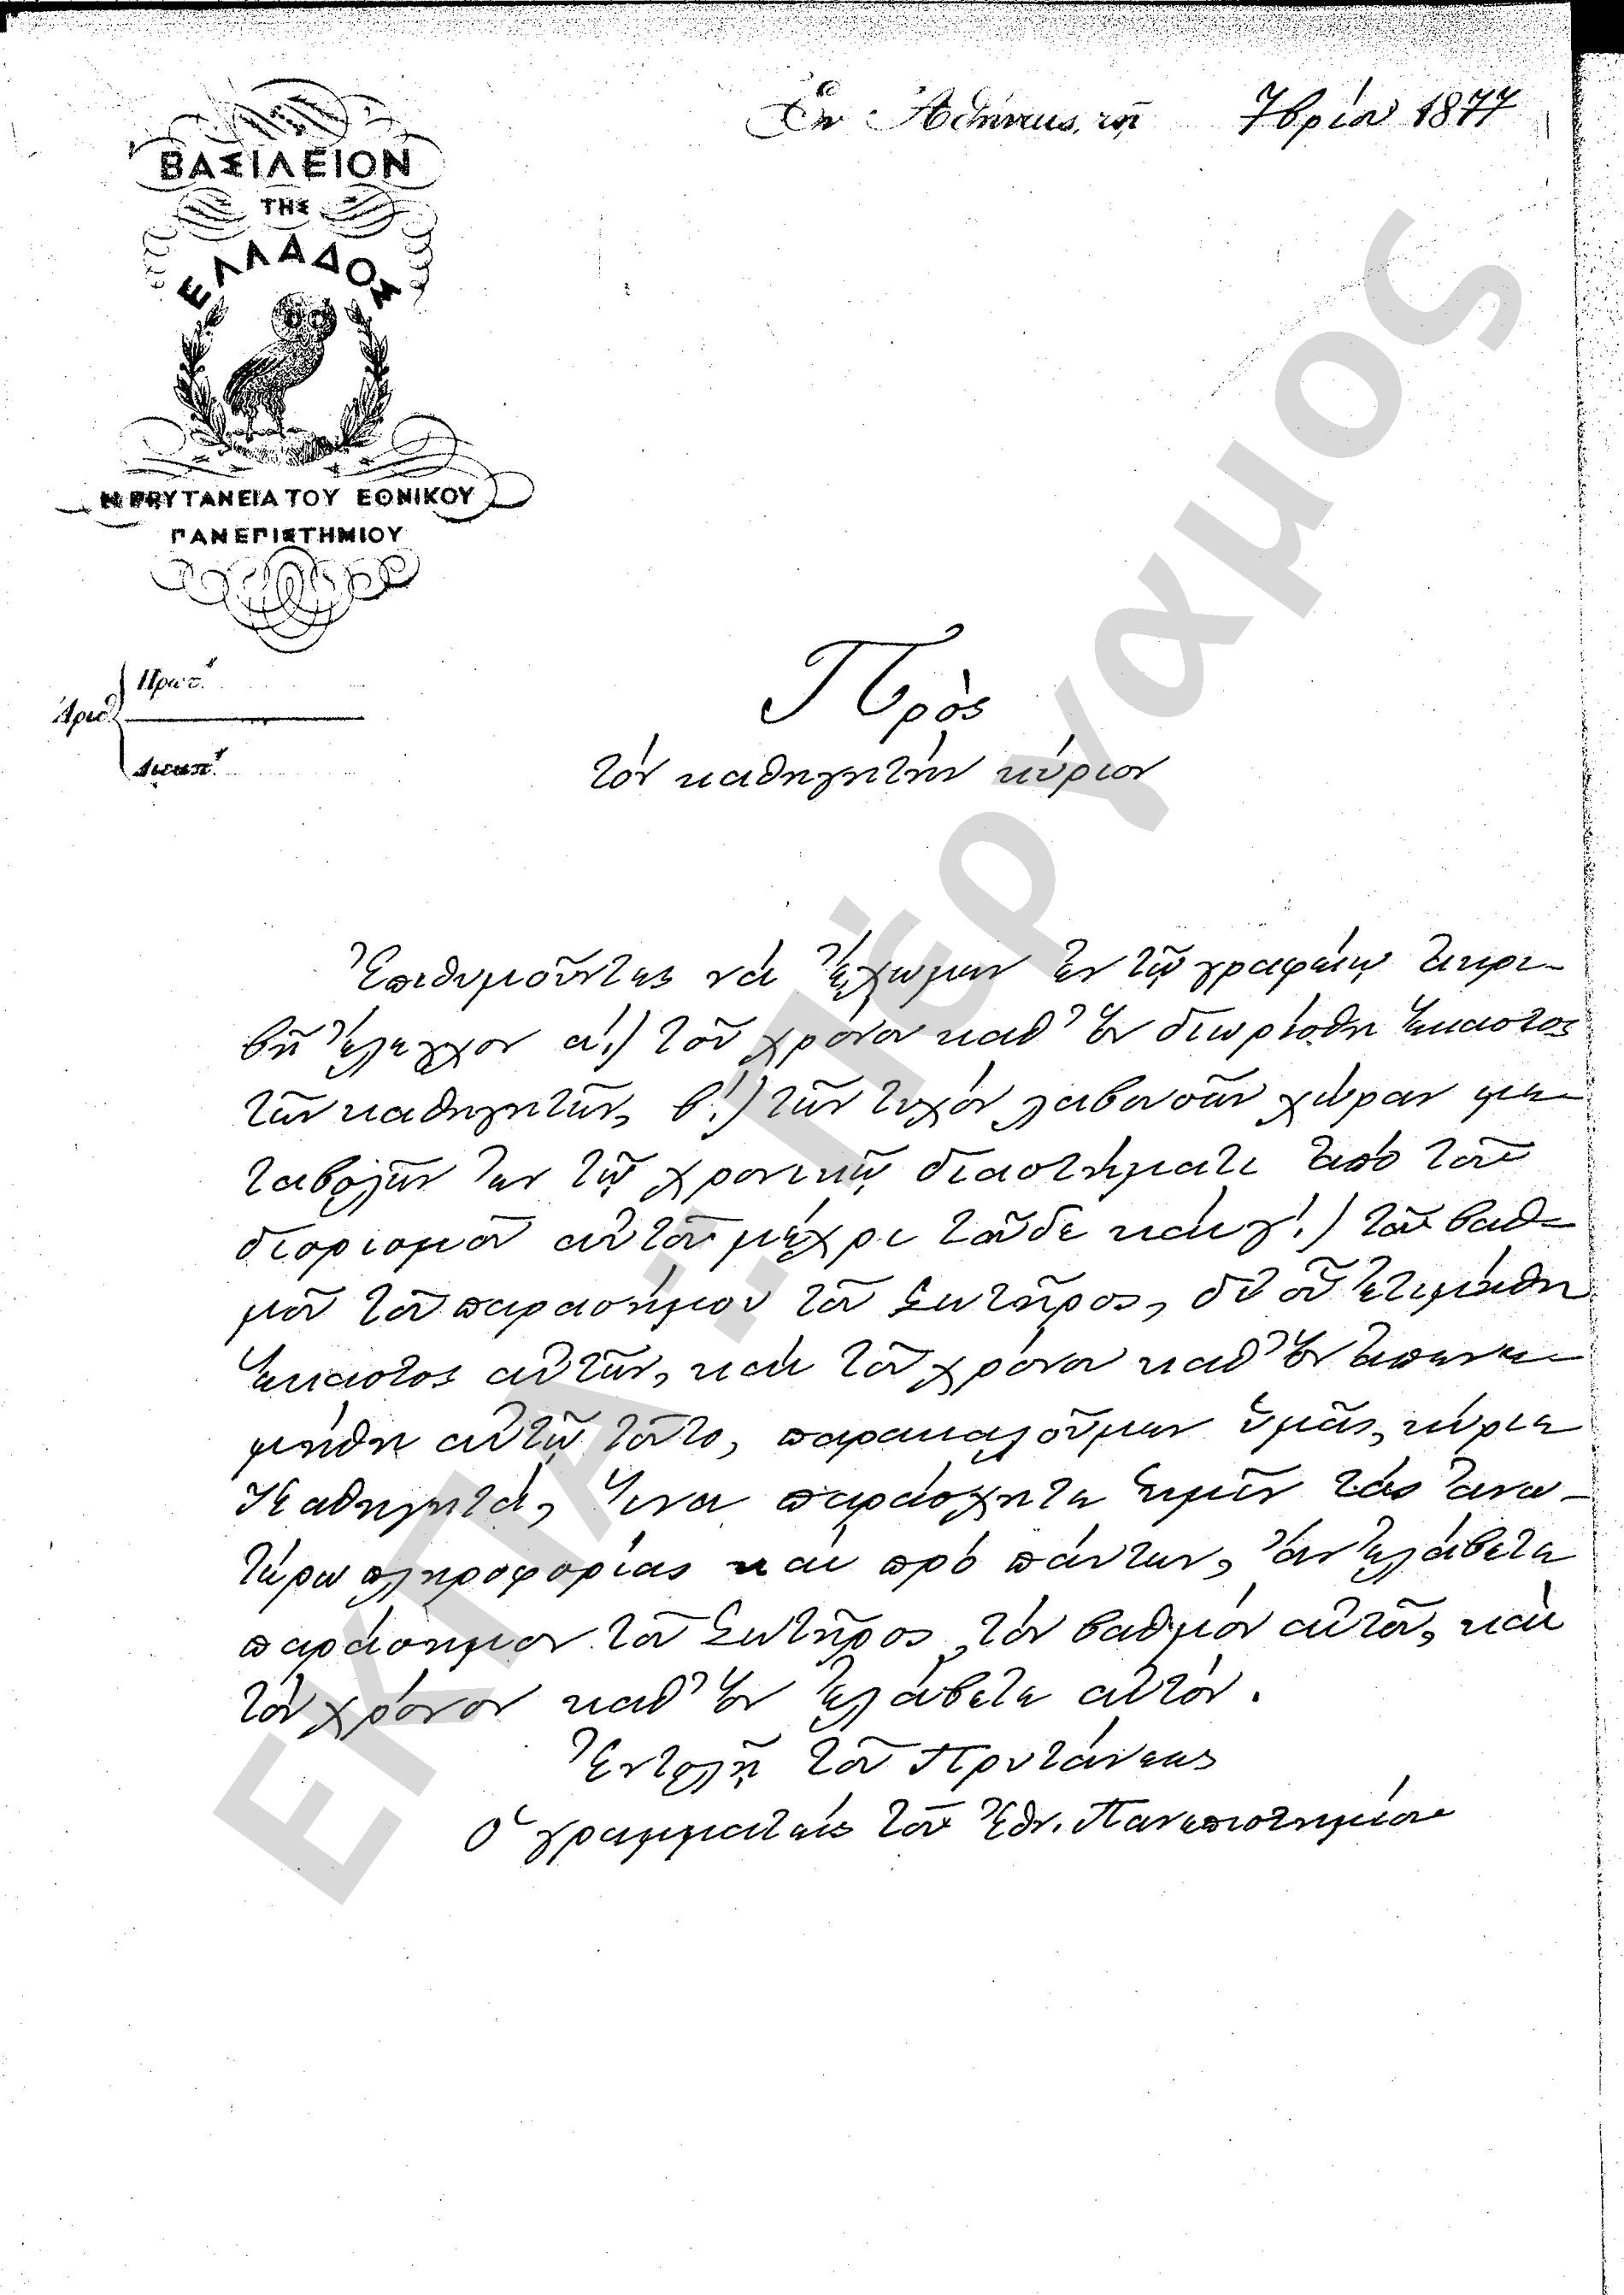 Ἐν Ἀθήναις, τῇ 7βρίου 1877
ΒΑΣΙΛΕΙΟΝ
ΤΗΣ
ΕΛΛΑΔΟΣ
Η ΠΡΥΤΑΝΕΙΑ ΤΟΥ ΕΘΝΙΚΟΥ
ΠΑΝΕΠΙΣΤΗΜΙΟΥ
Πρωτ.
Ἀριθ.
Διεκπ.
Πρὸς
τὸν καθηγητὴν κύριον
Ἐπιθυμοῦντες νὰ ἔχωμεν ἐν τῷ γραφείῳ ἀκρι-
βῆ ἔλεγχον α΄.) τοῦ χρόνου καθ᾽ ὃν διωρίσθη ἕκαστος
τῶν καθηγητῶν, β΄.) τῶν τυχὸν λαβουσῶν χώραν με-
ταβολῶν ἐν τῷ χρονικῷ διαστήματι ἀπὸ τοῦ
διορισμοῦ αὐτοῦ μέχρι τοῦδε καὶ γ΄.) τοῦ βαθ-
μοῦ τοῦ παρασήμου τοῦ Σωτῆρος, δι᾽ οὗ ἐτιμήθη
ἕκαστος αὐτῶν, καὶ τοῦ χρόνου καθ᾽ ὃν ἀπενε-
μήθη αὐτῷ τοῦτο, παρακαλοῦμεν ὑμᾶς, κύριε
Καθηγητά, ἵνα παράσχητε ἡμῖν τὰς ἀνω-
τέρω πληροφορίας καὶ πρὸ πάντων, ἂν ἐλάβετε
παράσημον τοῦ Σωτῆρος, τὸν βαθμὸν αὐτοῦ, καὶ
τὸν χρόνον καθ᾽ ὃν ἐλάβετε αὐτόν.
Ἐντολῇ τοῦ Πρυτάνεως
Ὁ γραμματεὺς τοῦ Ἐθν. Πανεπιστημίου
ΕΚΠΑ: Πέργαμος